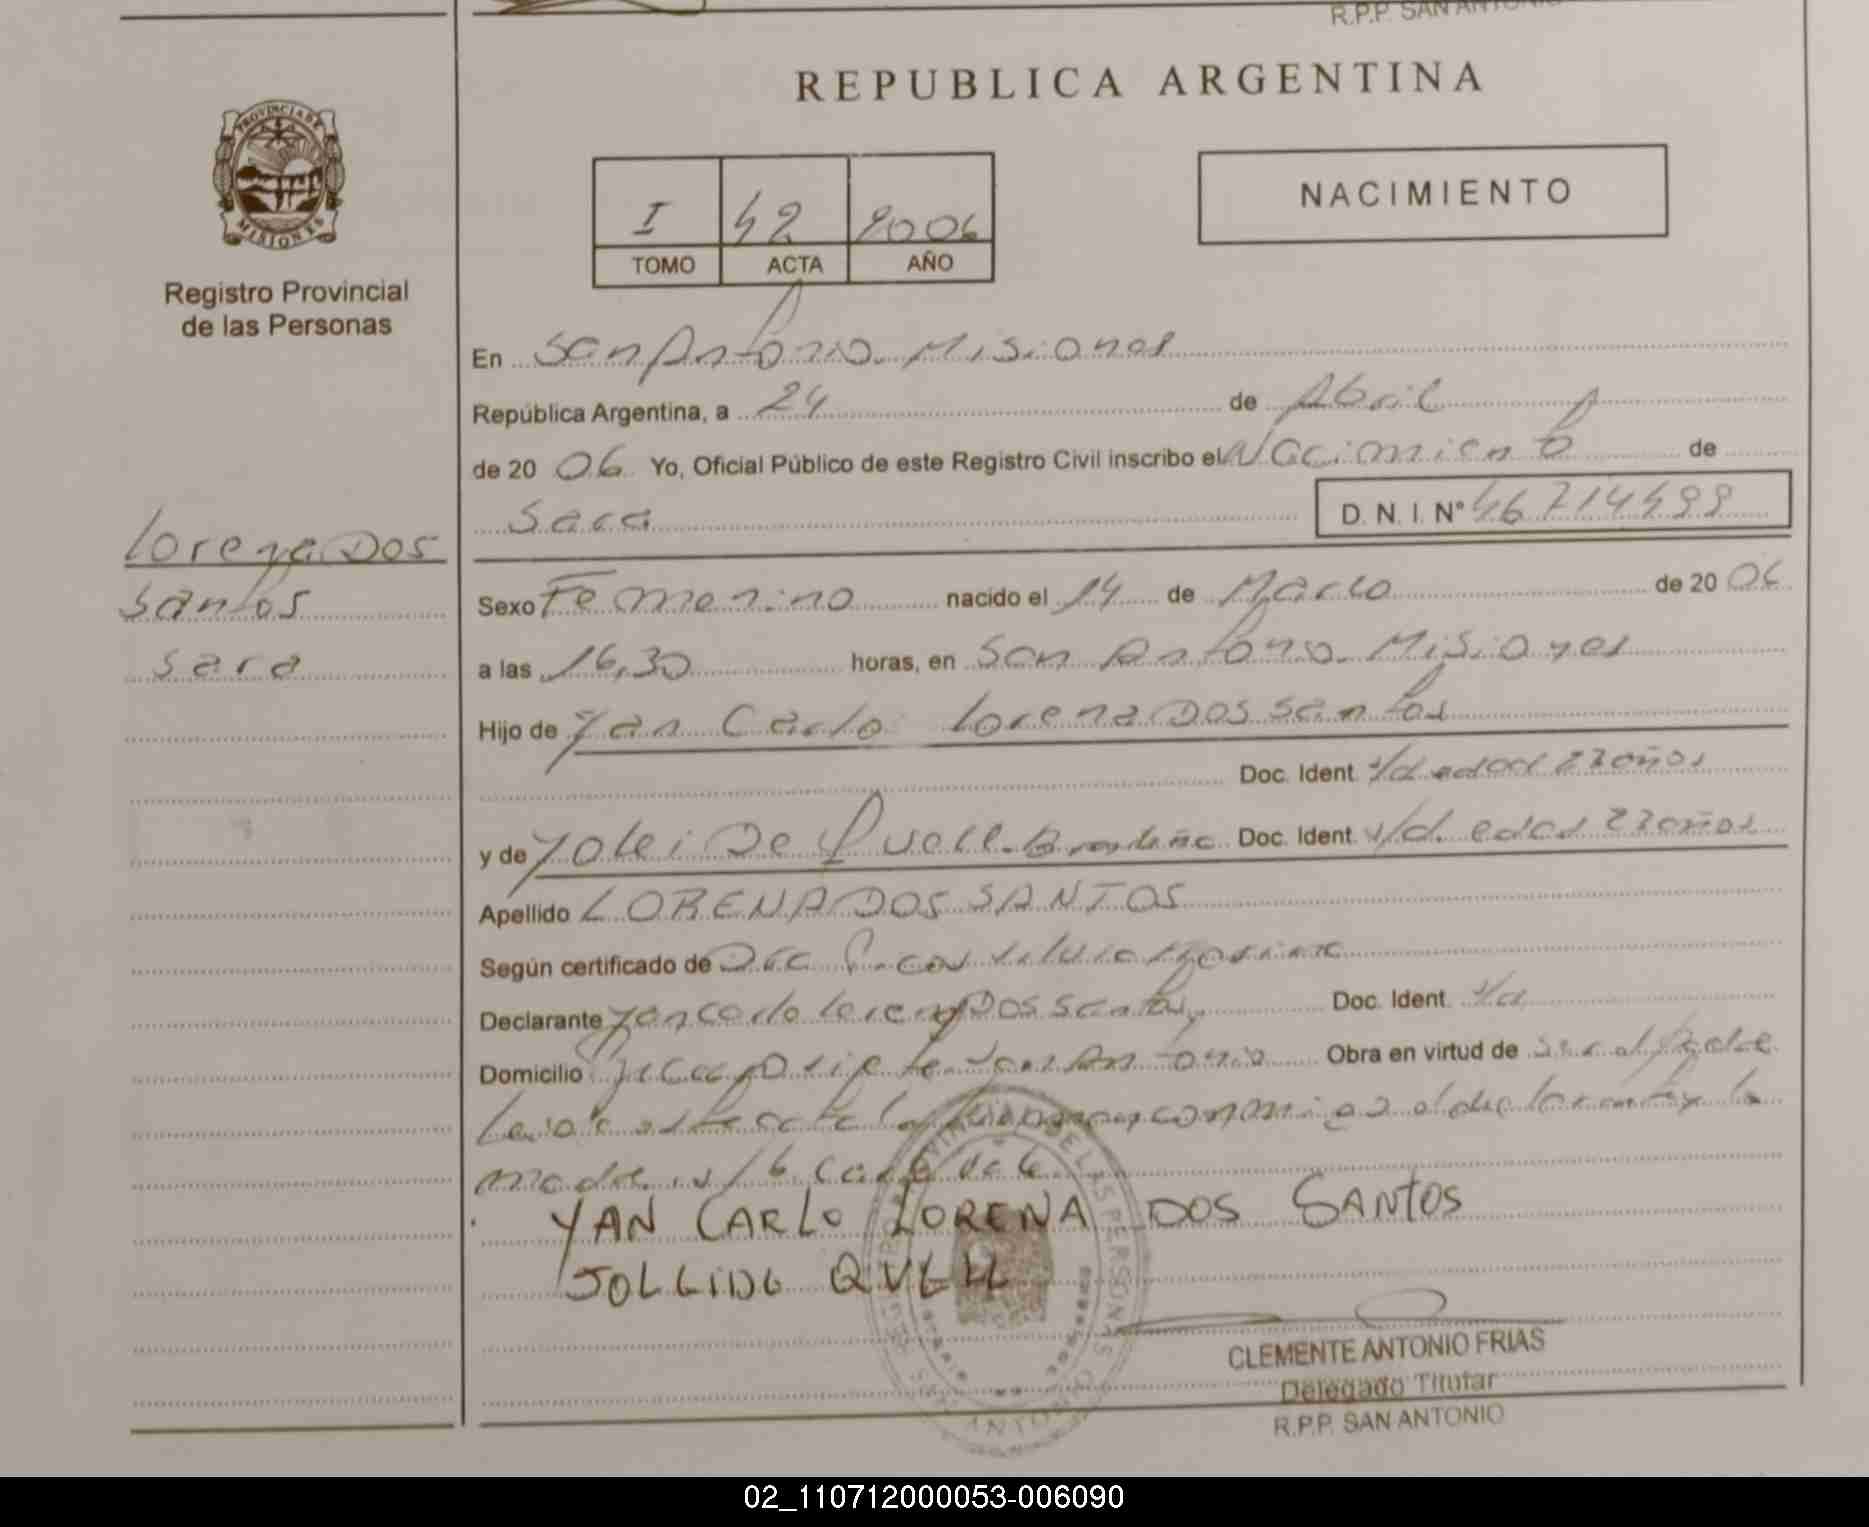 R.P.P. SAN ANTONIO
REPUBLICA ARGENTINA
PROVINCIA DE
MISIONES
Registro Provincial
de las Personas
I 42 2006
TOMO ACTA AÑO
NACIMIENTO
En San Antonio Misiones
República Argentina, a 24 de Abril
de 20 06 Yo, Oficial Público de este Registro Civil inscribo el Nacimiento de
Sara D. N. I. Nº 46714499
Lorena Dos
Santos
Sara
Sexo Femenino nacido el 14 de Marzo de 20 06
a las 16,30 horas, en San Antonio Misiones
Hijo de Yan Carlo Lorena Dos Santos
Doc. Ident. s/d edad 22 años
y de Yolei De Quell Brasileña Doc. Ident. s/d. edad 22 años
Apellido LORENA DOS SANTOS
Según certificado de
Declarante Yan Carlo Lorena Dos Santos Doc. Ident. s/d
Domicilio San Antonio Obra en virtud de ser el padre
conmigo el declarante y la
madre
YAN CARLO LORENA DOS SANTOS
JOLLIDE QUELL
CLEMENTE ANTONIO FRIAS
Delegado Titular
R.P.P. SAN ANTONIO
02_110712000053-006090